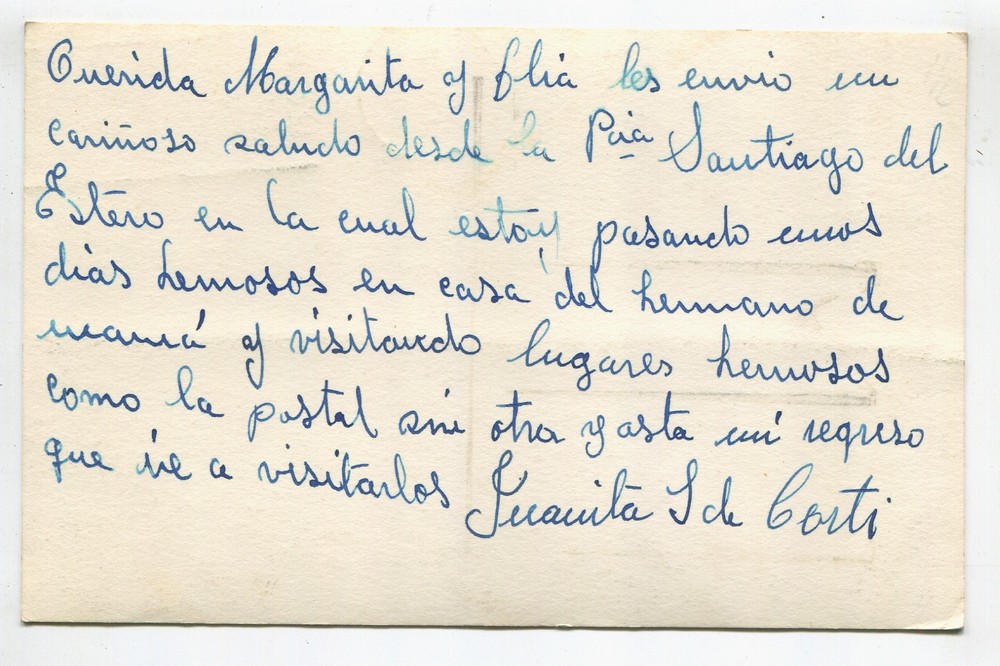 Querida Margarita y flia les envio un
cariñoso saludo desde la Pcia Santiago del
Estero en la cual estoy pasando unos
dias hemosos en casa del hermano de
mamá y visitando lugares hemosos
como la postal sin otra y asta mi regreso
que ire a visitarlos Juanita S de Corti